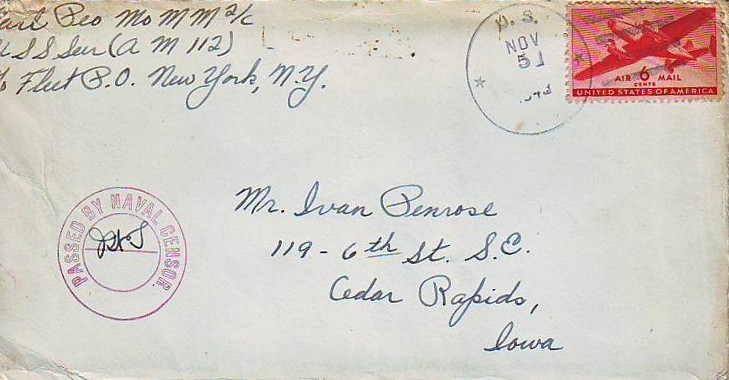 Mo M M 2/c
(A M 112)
Fleet P.O. New York, N.Y.
U. S.
NOV
5
AIR 6 MAIL
CENTS
UNITED STATES OF AMERICA
PASSED BY NAVAL CENSOR
Mr. Ivan Penrose
119 - 6th St. S.E.
Cedar Rapids,
Iowa